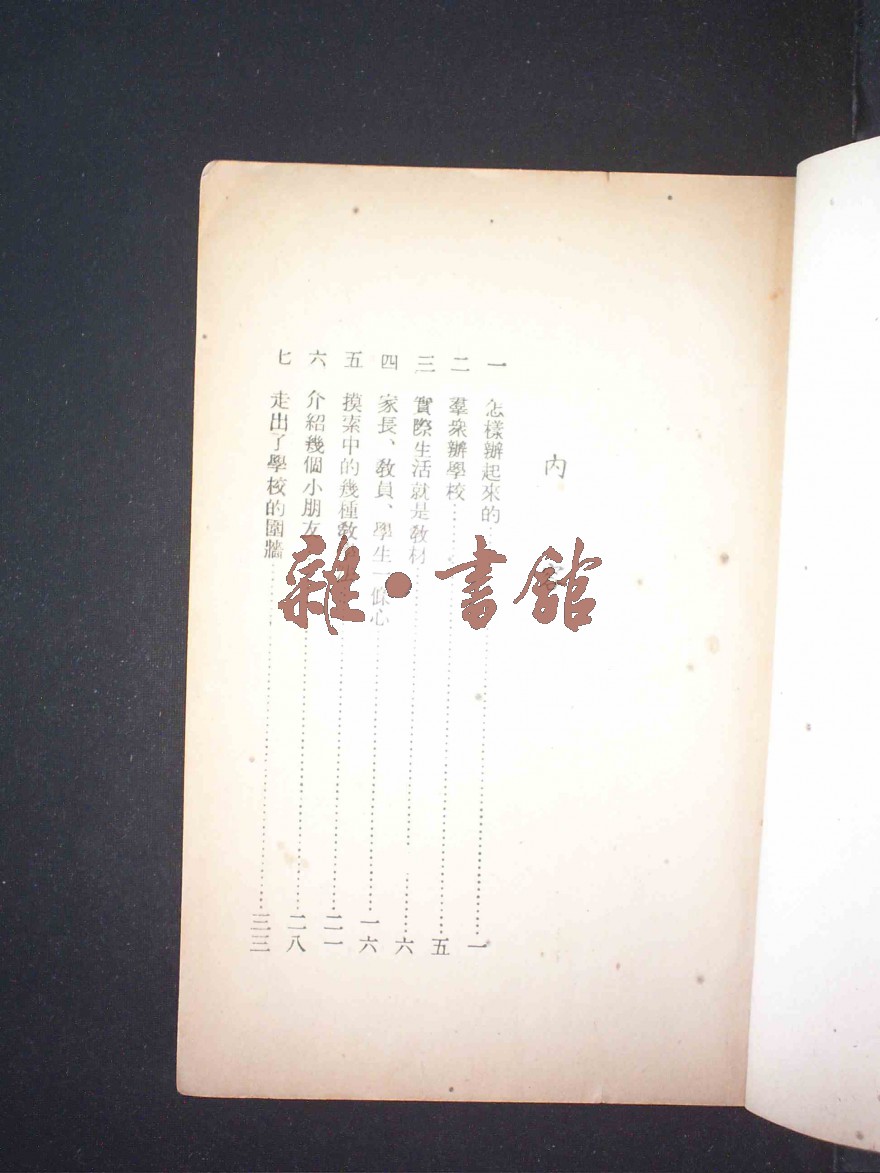 內
一 怎樣辦起來的……一
二 羣衆辦學校……五
三 實際生活就是敎材……六
四 家長、敎員、學生一條心……一六
五 摸索中的幾種敎……二一
六 介紹幾個小朋友……二八
七 走出了學校的圍牆……三三
雜·書館